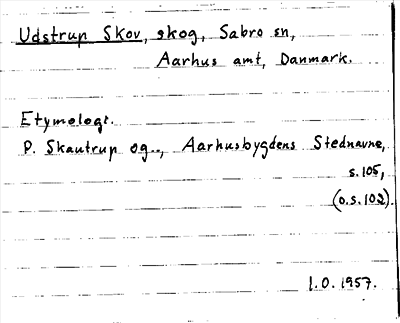 Udstrup Skov, skog, Sabro sn,
Aarhus amt, Danmark.
Etymologi.
P. Skautrup og.., Aarhusbygdens Stednavne,
s.105,
(o.s.102).
I.O. 1957.